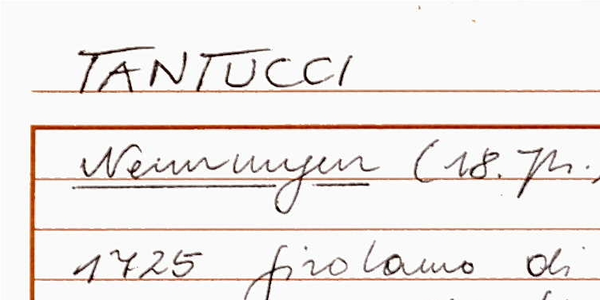 TANTUCCI
Nennungen (18. Jh.)
1725 Girolamo di